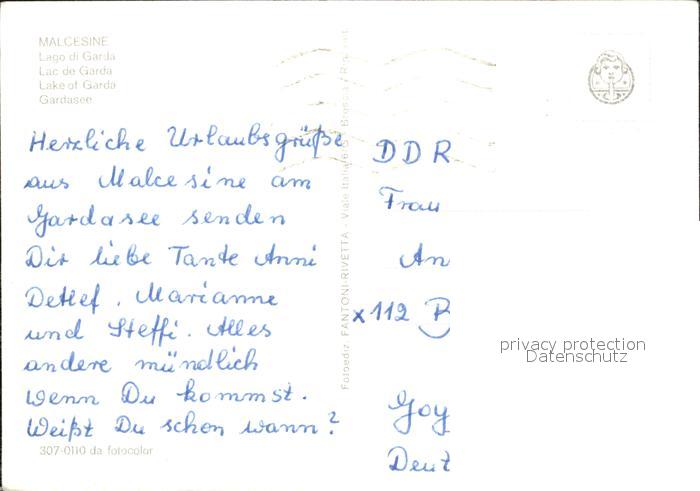 MALCESINE
Lago di Garda
Lac de Garda
Lake of Garda
Gardasee
Herzliche Urlaubsgrüße
aus Malcesine am
Gardasee senden
Dir liebe Tante Anni
Detlef, Marianne
und Steffi. Alles
andere mündlich
wenn Du kommst.
Weißt Du schon wann?
307-0110 da fotocolor
Fotoediz. FANTONI-RIVETTA - Viale Italia
DDR
Frau
An
x 112 B
Goy
Deut
privacy protection
Datenschutz